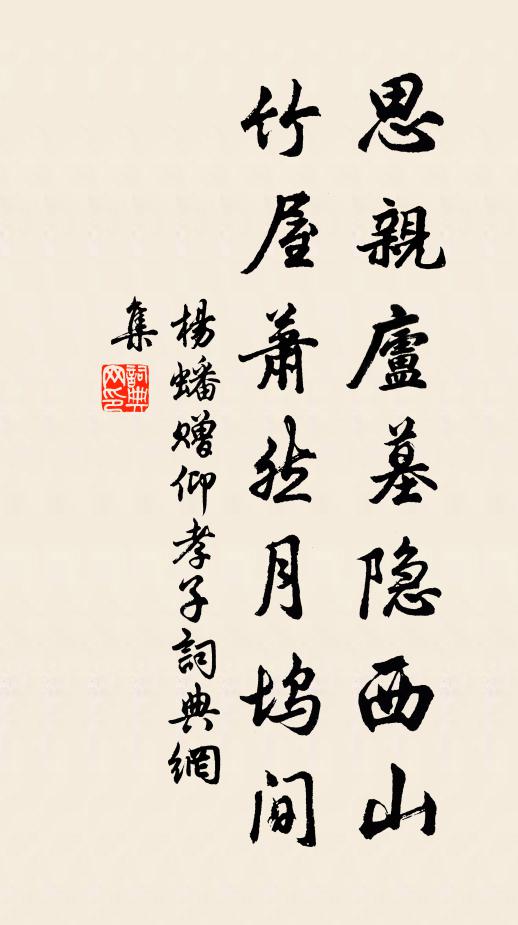 思親廬墓隐西山
竹屋蕭然月塢間
楊蟠贈仰孝子詞典網
集
詞典
网印